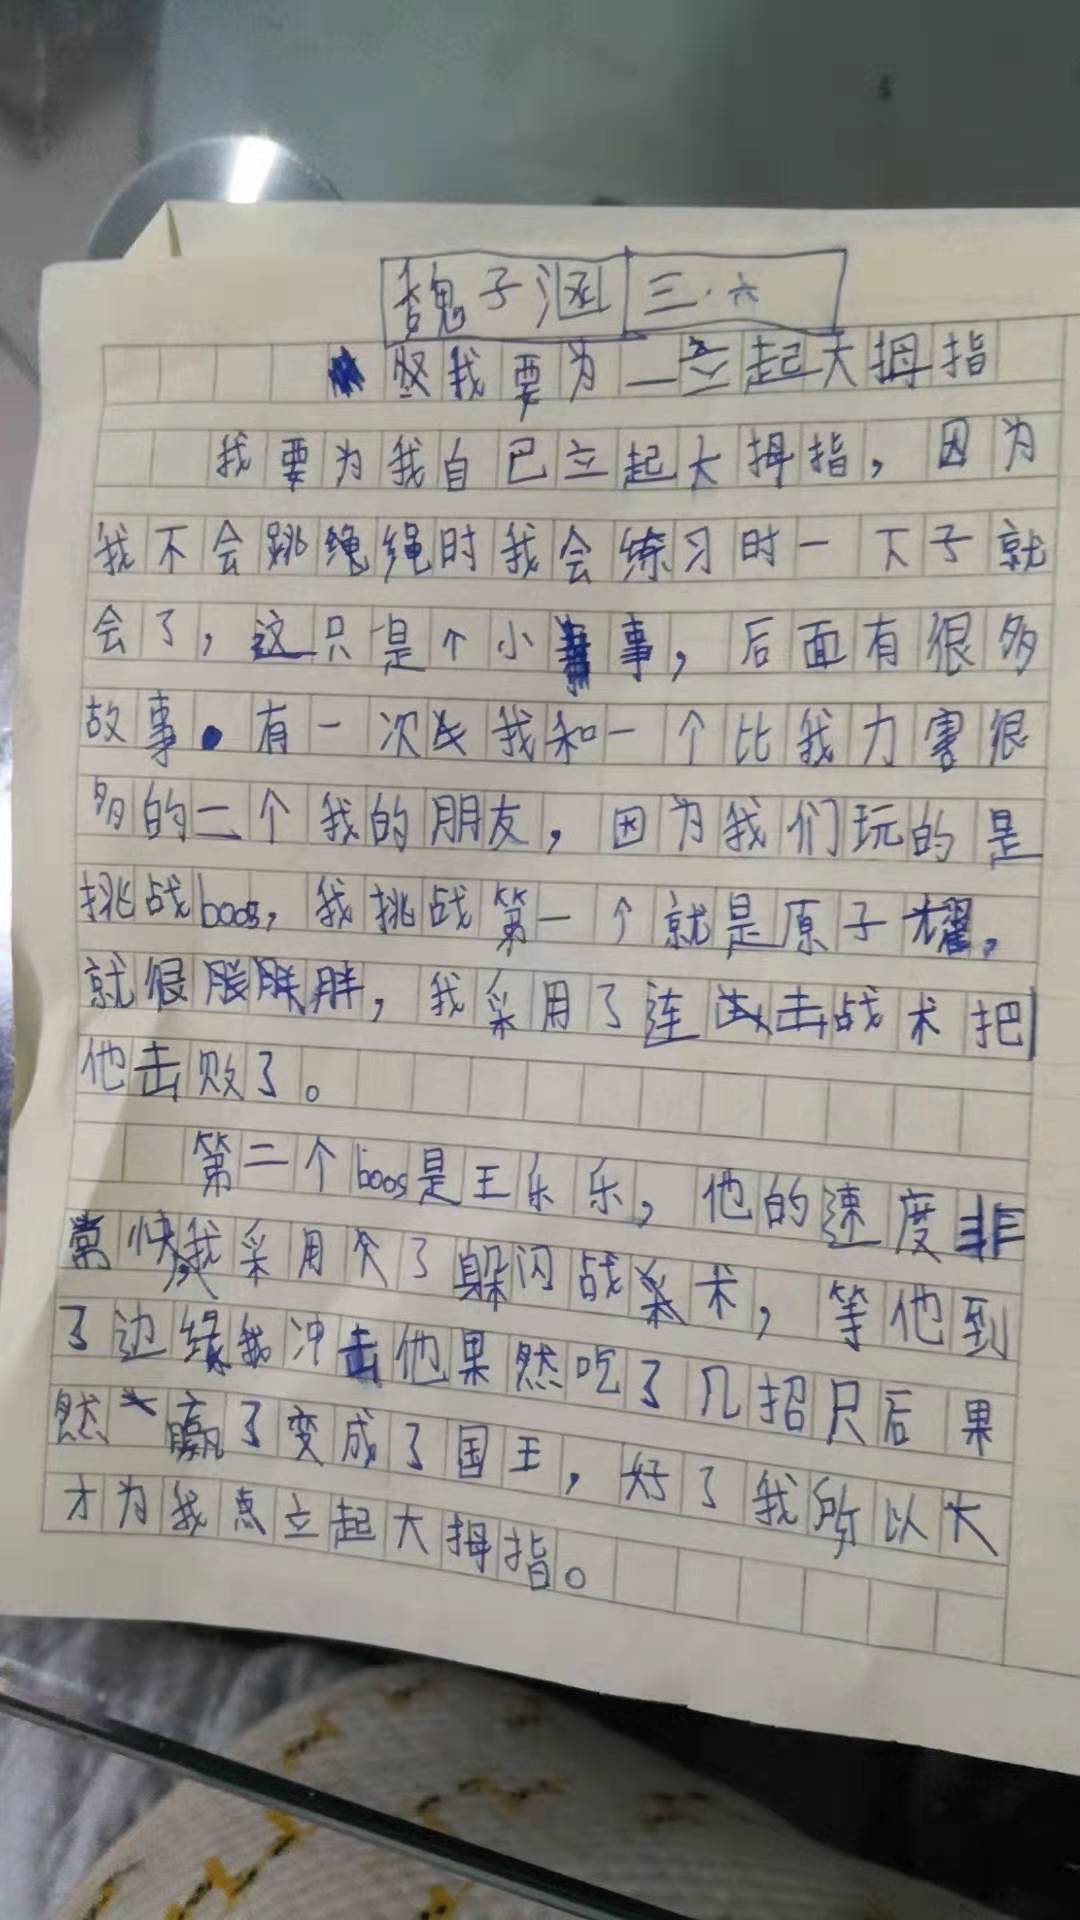 魏子涵 三·六
我要为一立起大拇指
我要为我自己立起大拇指，因为
我不会跳绳时我会练习时一下子就
会了，这只是个小事，后面有很多
故事。有一次我和一个比我力害很
多的二个我的朋友，因为我们玩的是
挑战boos，我挑战第一个就是原子耀，
就很胖，我采用了连击战术把
他击败了。
第二个boos是王乐乐，他的速度非
常快我采用了躲闪战术，等他到
了边缘我冲击他果然吃了几招只后果
然赢了变成了国王，好了我所以大
才为我点立起大拇指。